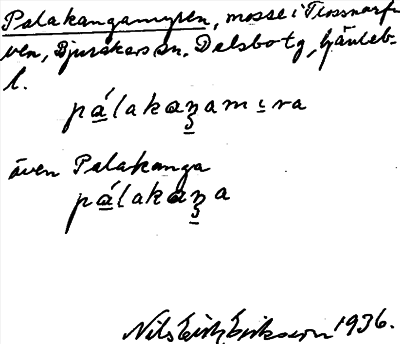 Palakangamyren, mosse i Flossnarfven,
Bjuråkers sn, Delsbo tg, Gävleb-
l.
pálakaŋamıra
även Palakanga
pálakaŋa
Nils Erik Eriksson 1936.